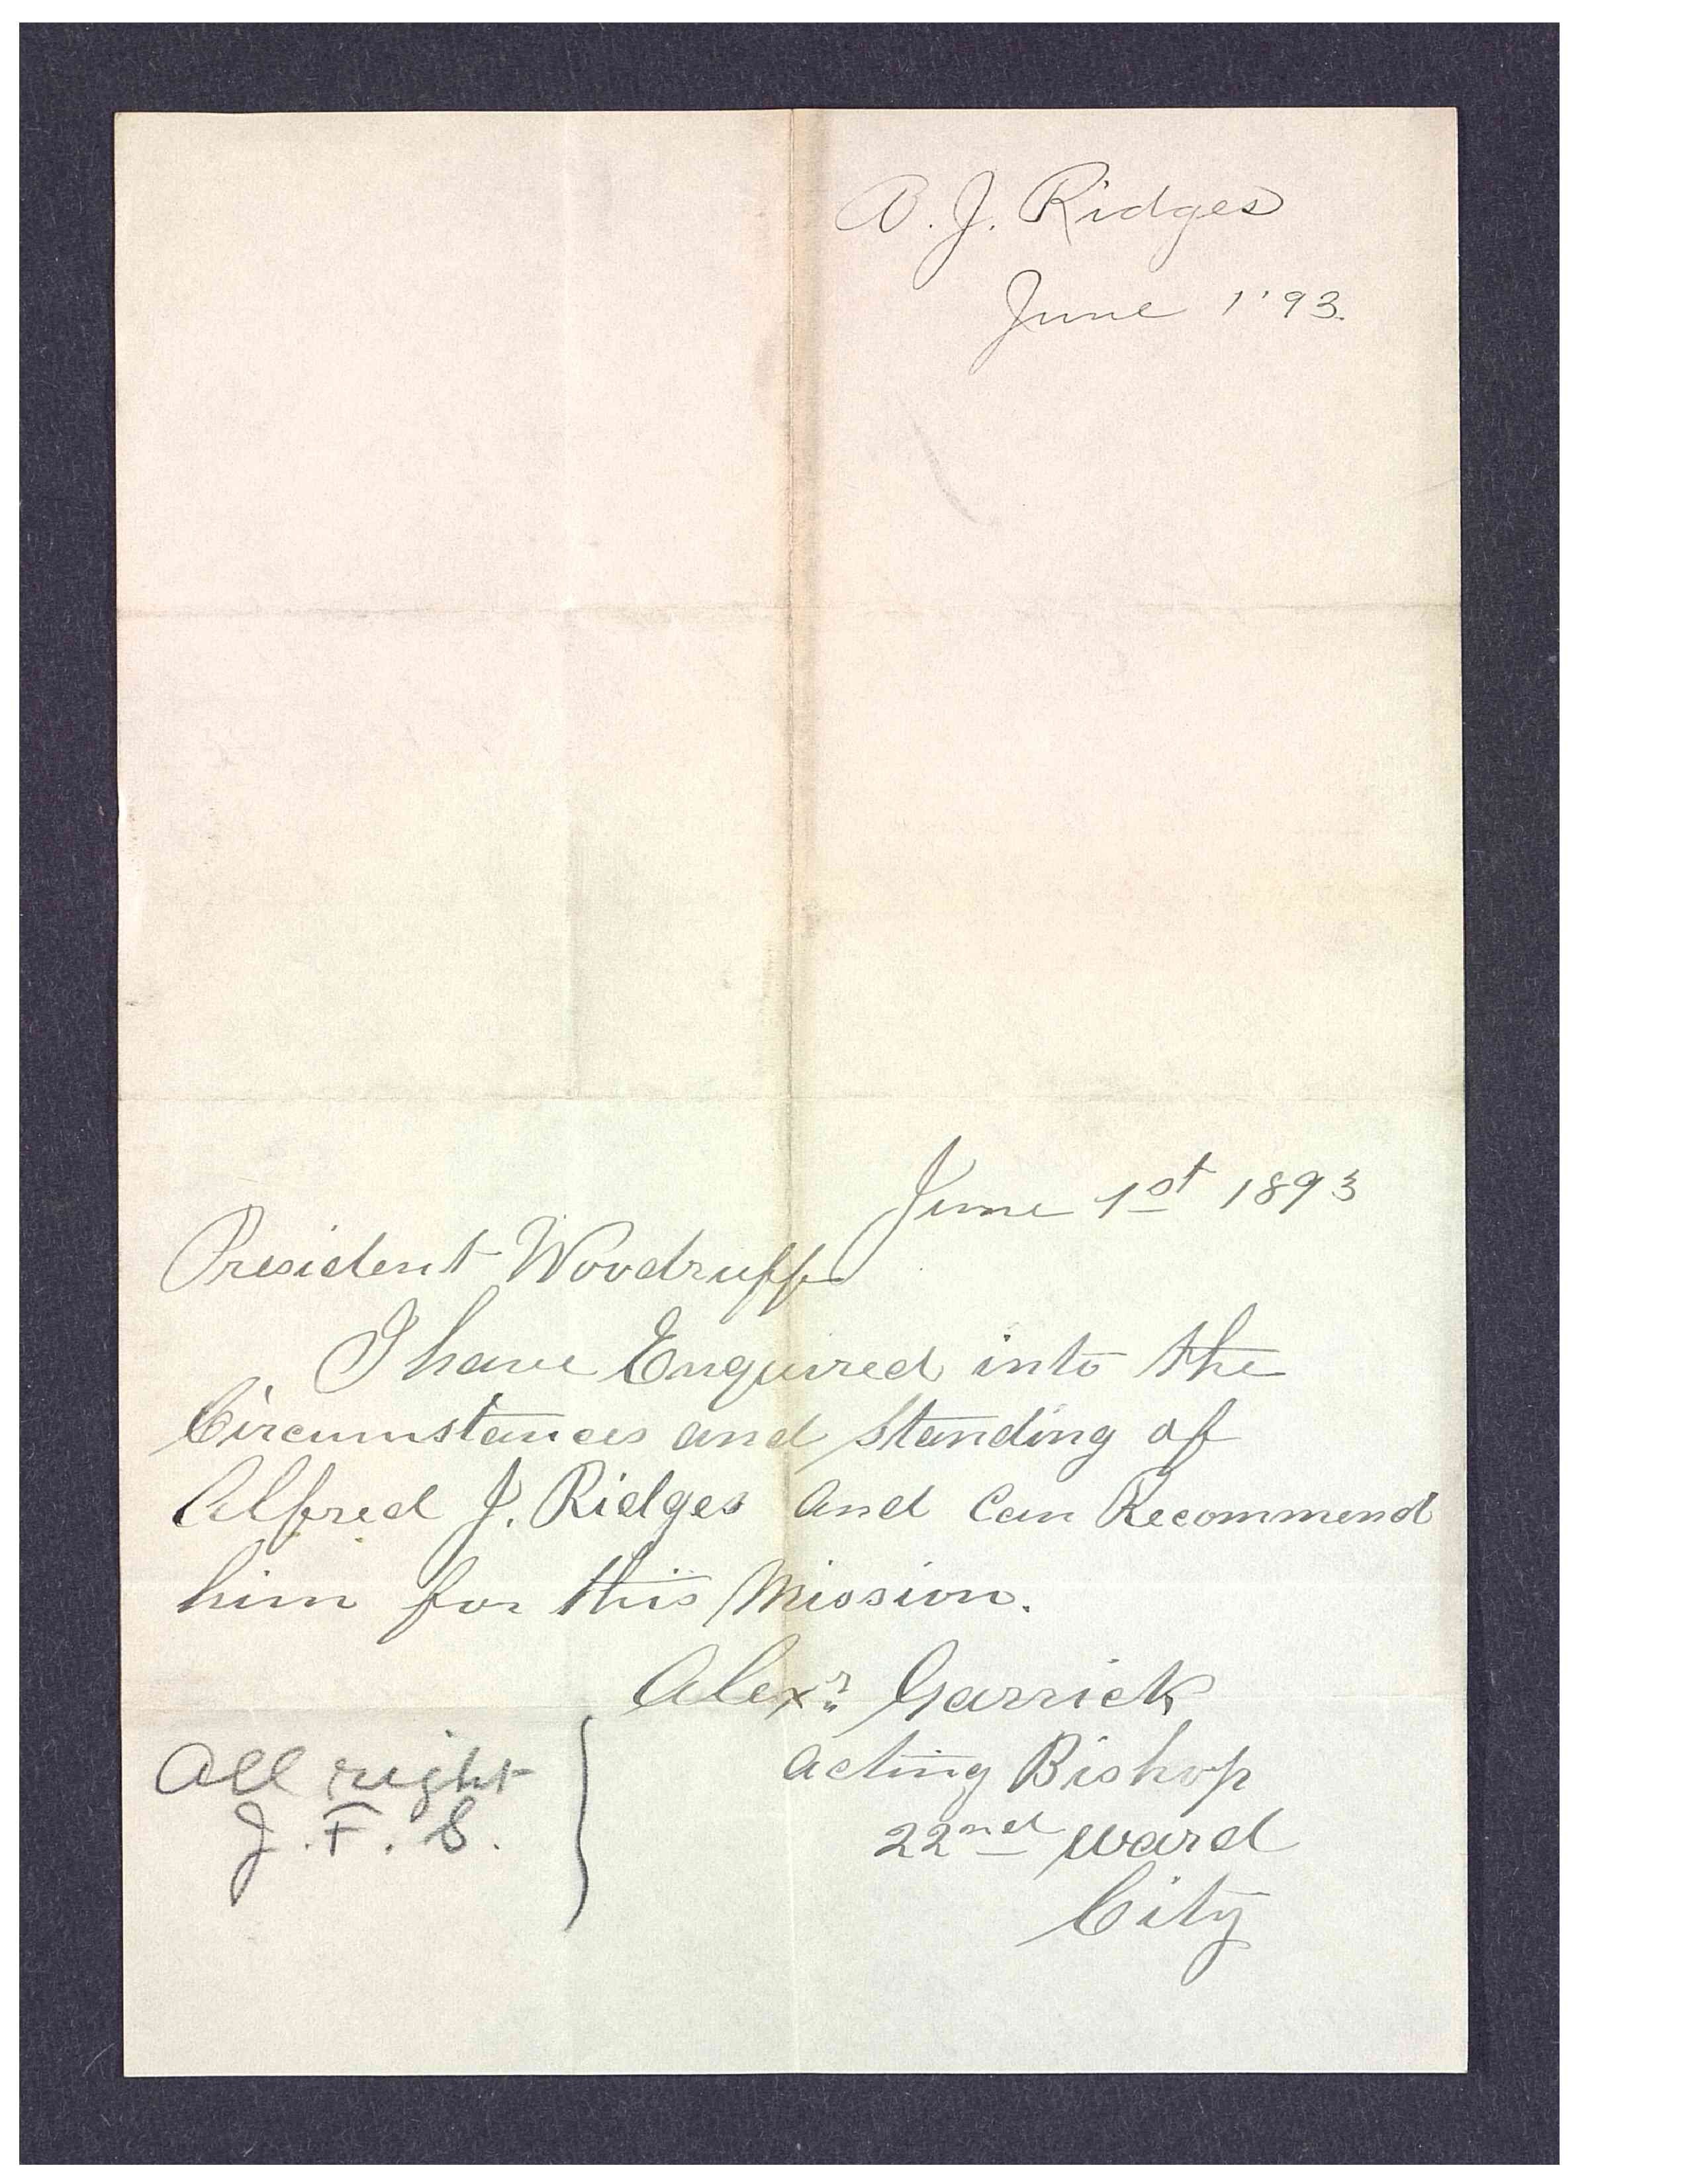 A. J. Ridges
June 1 '93.
June 1st 1893
President Woodruff
I have Enquired into the
Circumstances and Standing of
Alfred J. Ridges and Can Recommend
him for this Mission.
Alexr Garrick
acting Bishop
22nd ward
City
All right
J. F. S.